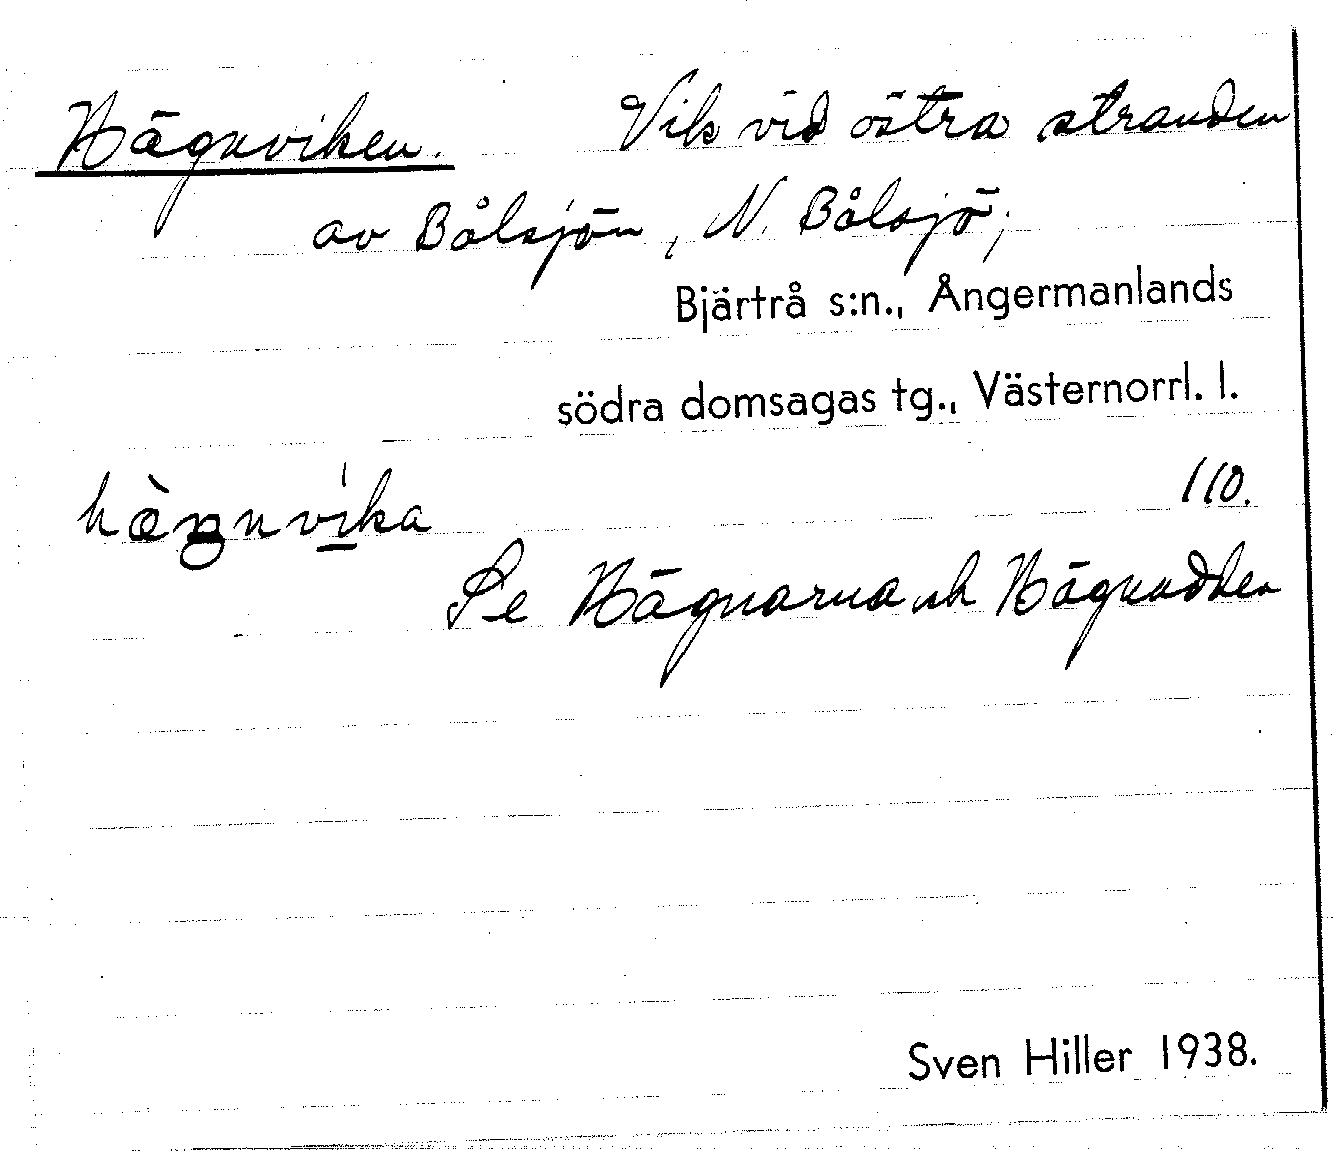 Hägnviken. Vik vid östra stranden
av Bålsjön, N. Bålsjö,
Bjärtrå s:n., Ångermanlands
södra domsagas tg., Västernorrl. l.
110.
Se Hägnarna och Hägnudden
Sven Hiller 1938.